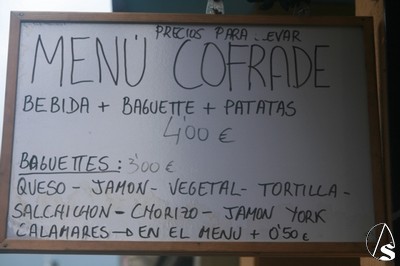 PRECIOS PARA LLEVAR
MENÚ COFRADE
BEBIDA + BAGUETTE + PATATAS
4'00 €
BAGUETTES: 3'00 €
QUESO - JAMON - VEGETAL - TORTILLA -
SALCHICHON - CHORIZO - JAMON YORK
CALAMARES → EN EL MENU + 0'50 €